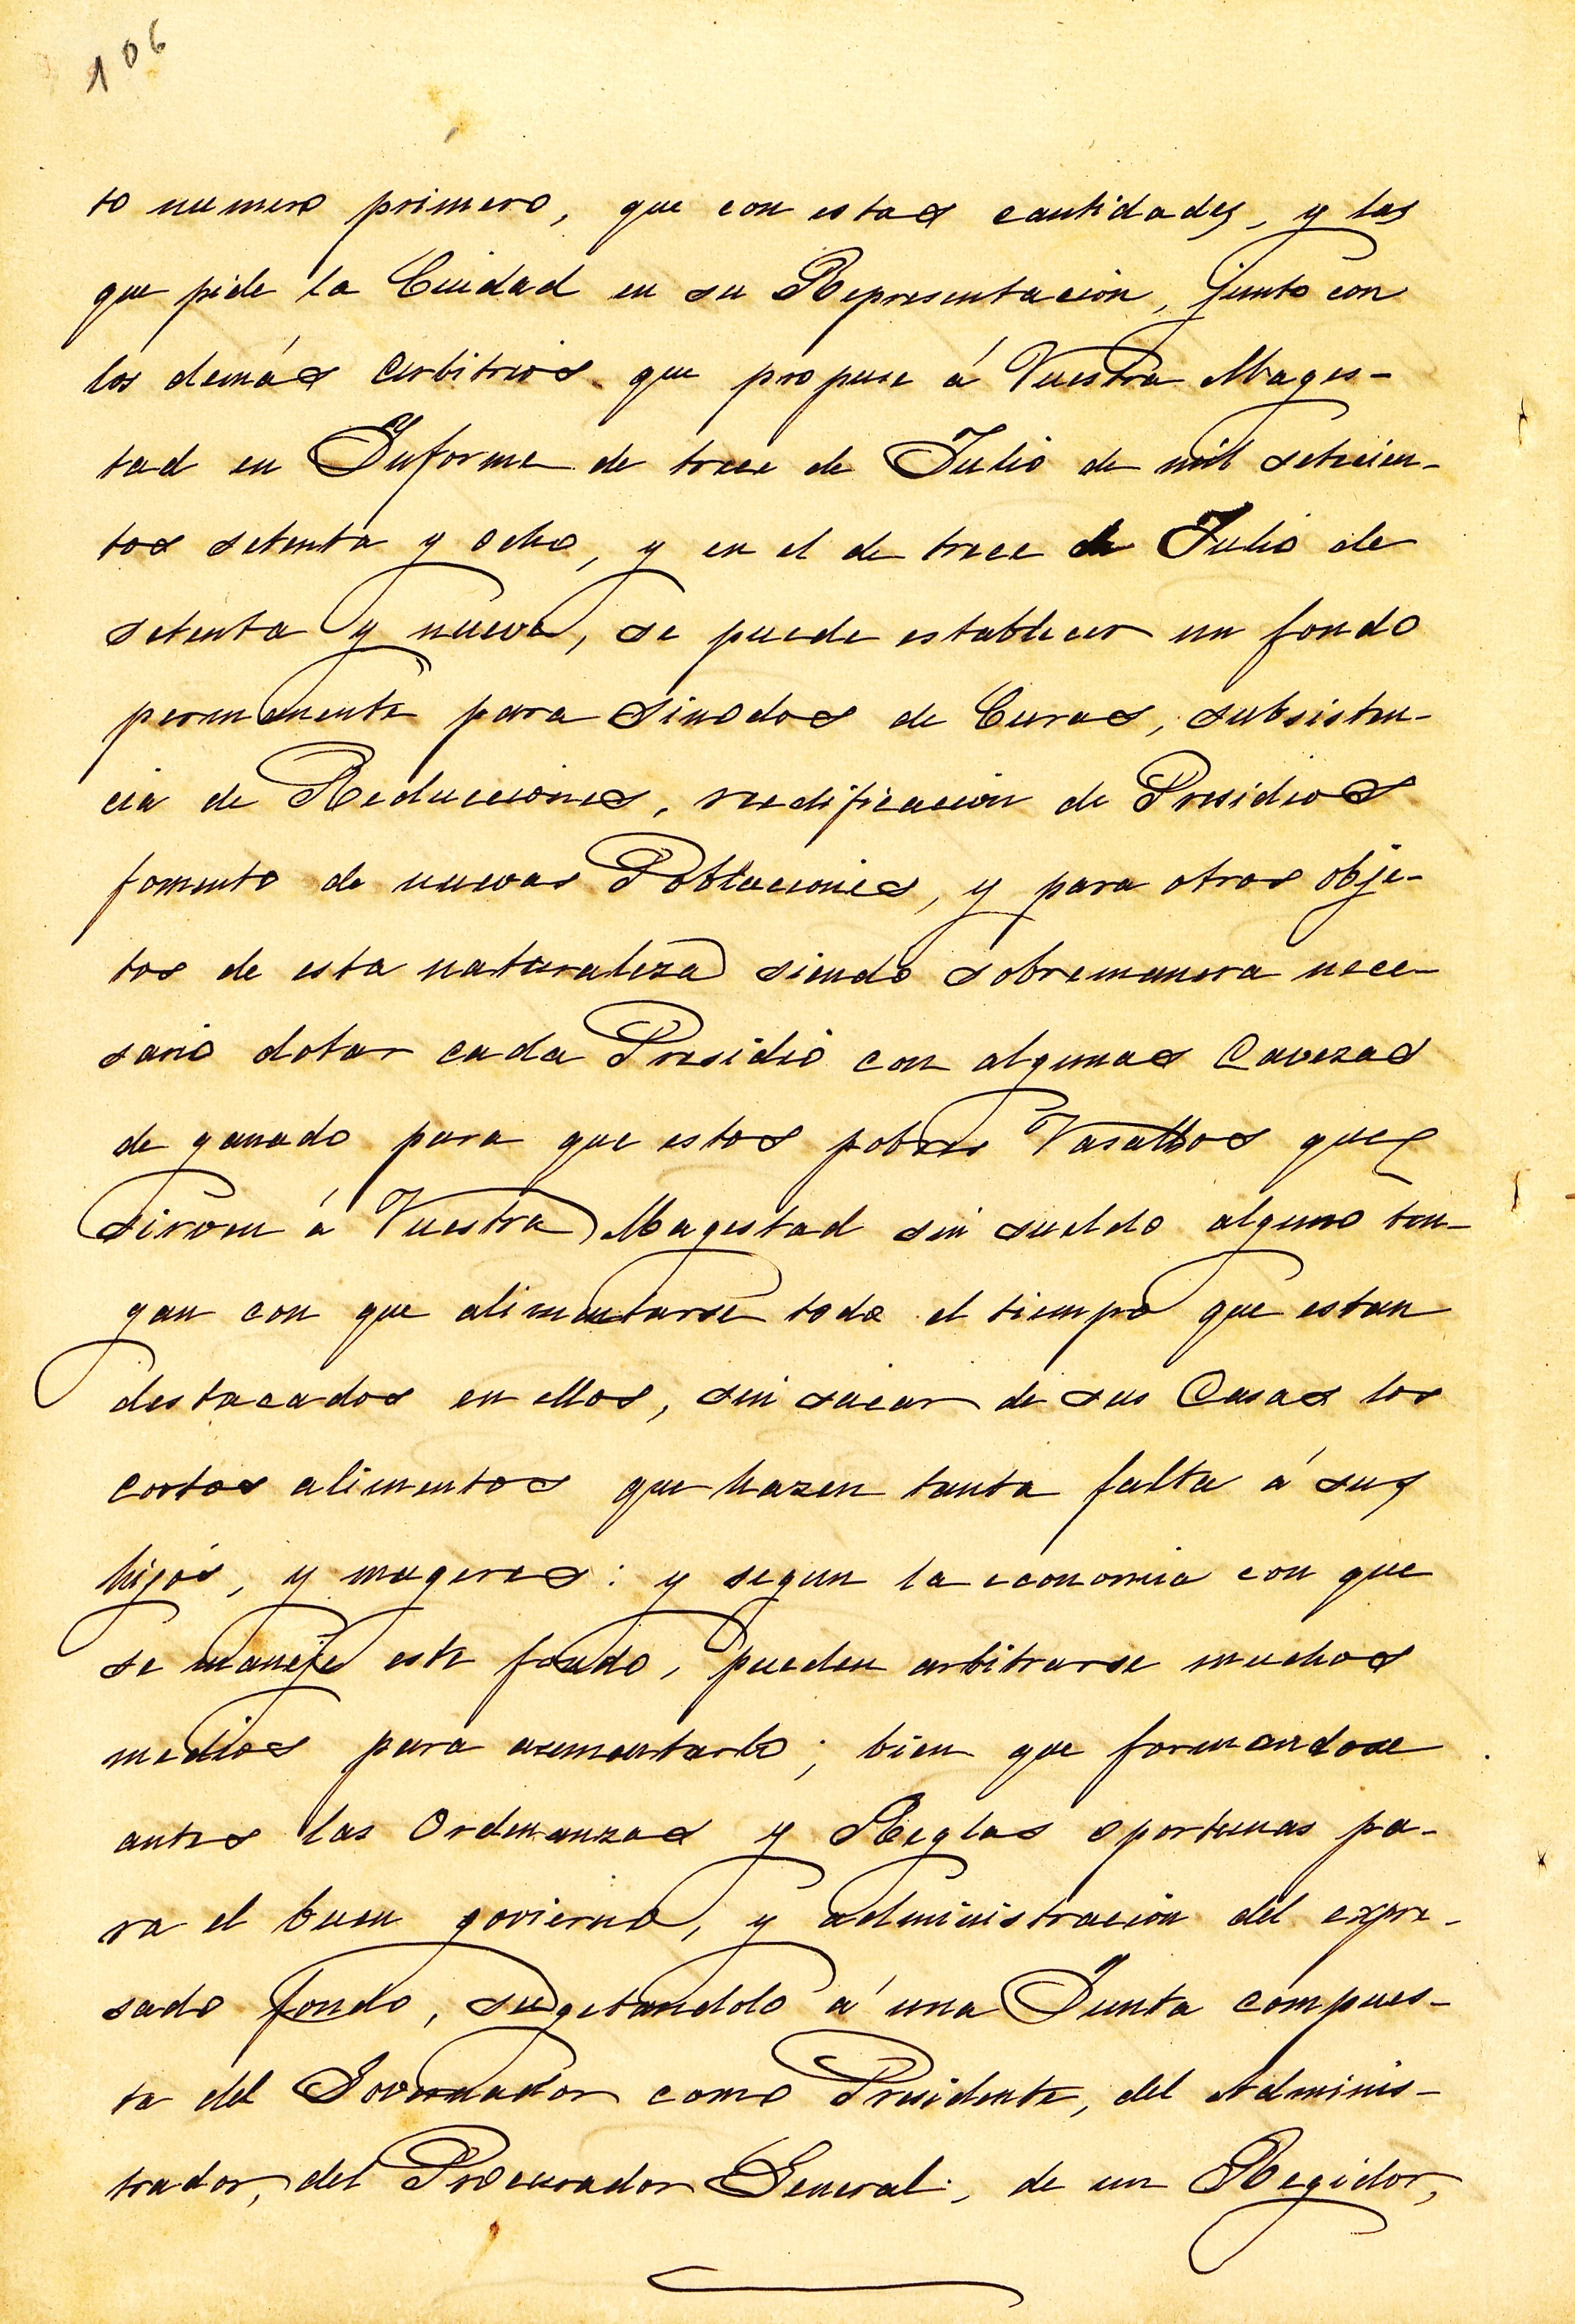 106
to numero primero, que con estas cantidades, y las
que pide la Ciudad en su Representacion, junto con
los demás arbitrios que propuse á Vuestra Mages-
tad en Informe de trece de Julio de mil setecien-
tos setenta y ocho, y en el de trece de Julio de
setenta y nueve, se puede establecer un fondo
permanente para Sinodos de Curas, subsisten-
cia de Reducciones, reedificacion de Presidios
fomento de nuevas Poblaciones, y para otros obje-
tos de esta naturaleza siendo sobremanera nece-
sario dotar cada Presidio con algunas Cavezas
de ganado para que estos pobres Vasallos que
sirven á Vuestra Magestad sin sueldo alguno ten-
gan con que alimentarse todo el tiempo que estan
destacados en ellos, sin sacar de sus Casas los
cortos alimentos que hazen tanta falta á sus
hijos, y mugeres: y segun la economia con que
se maneje este fondo, pueden arbitrarse muchos
medios para aumentarlo; bien que formandose
antes las Ordenanzas y Reglas oportunas pa-
ra el buen govierno, y administracion del expre-
sado fondo, sugetandolo á una Junta compues-
ta del Governador como Presidente, del Adminis-
trador, del Procurador General, de un Regidor,